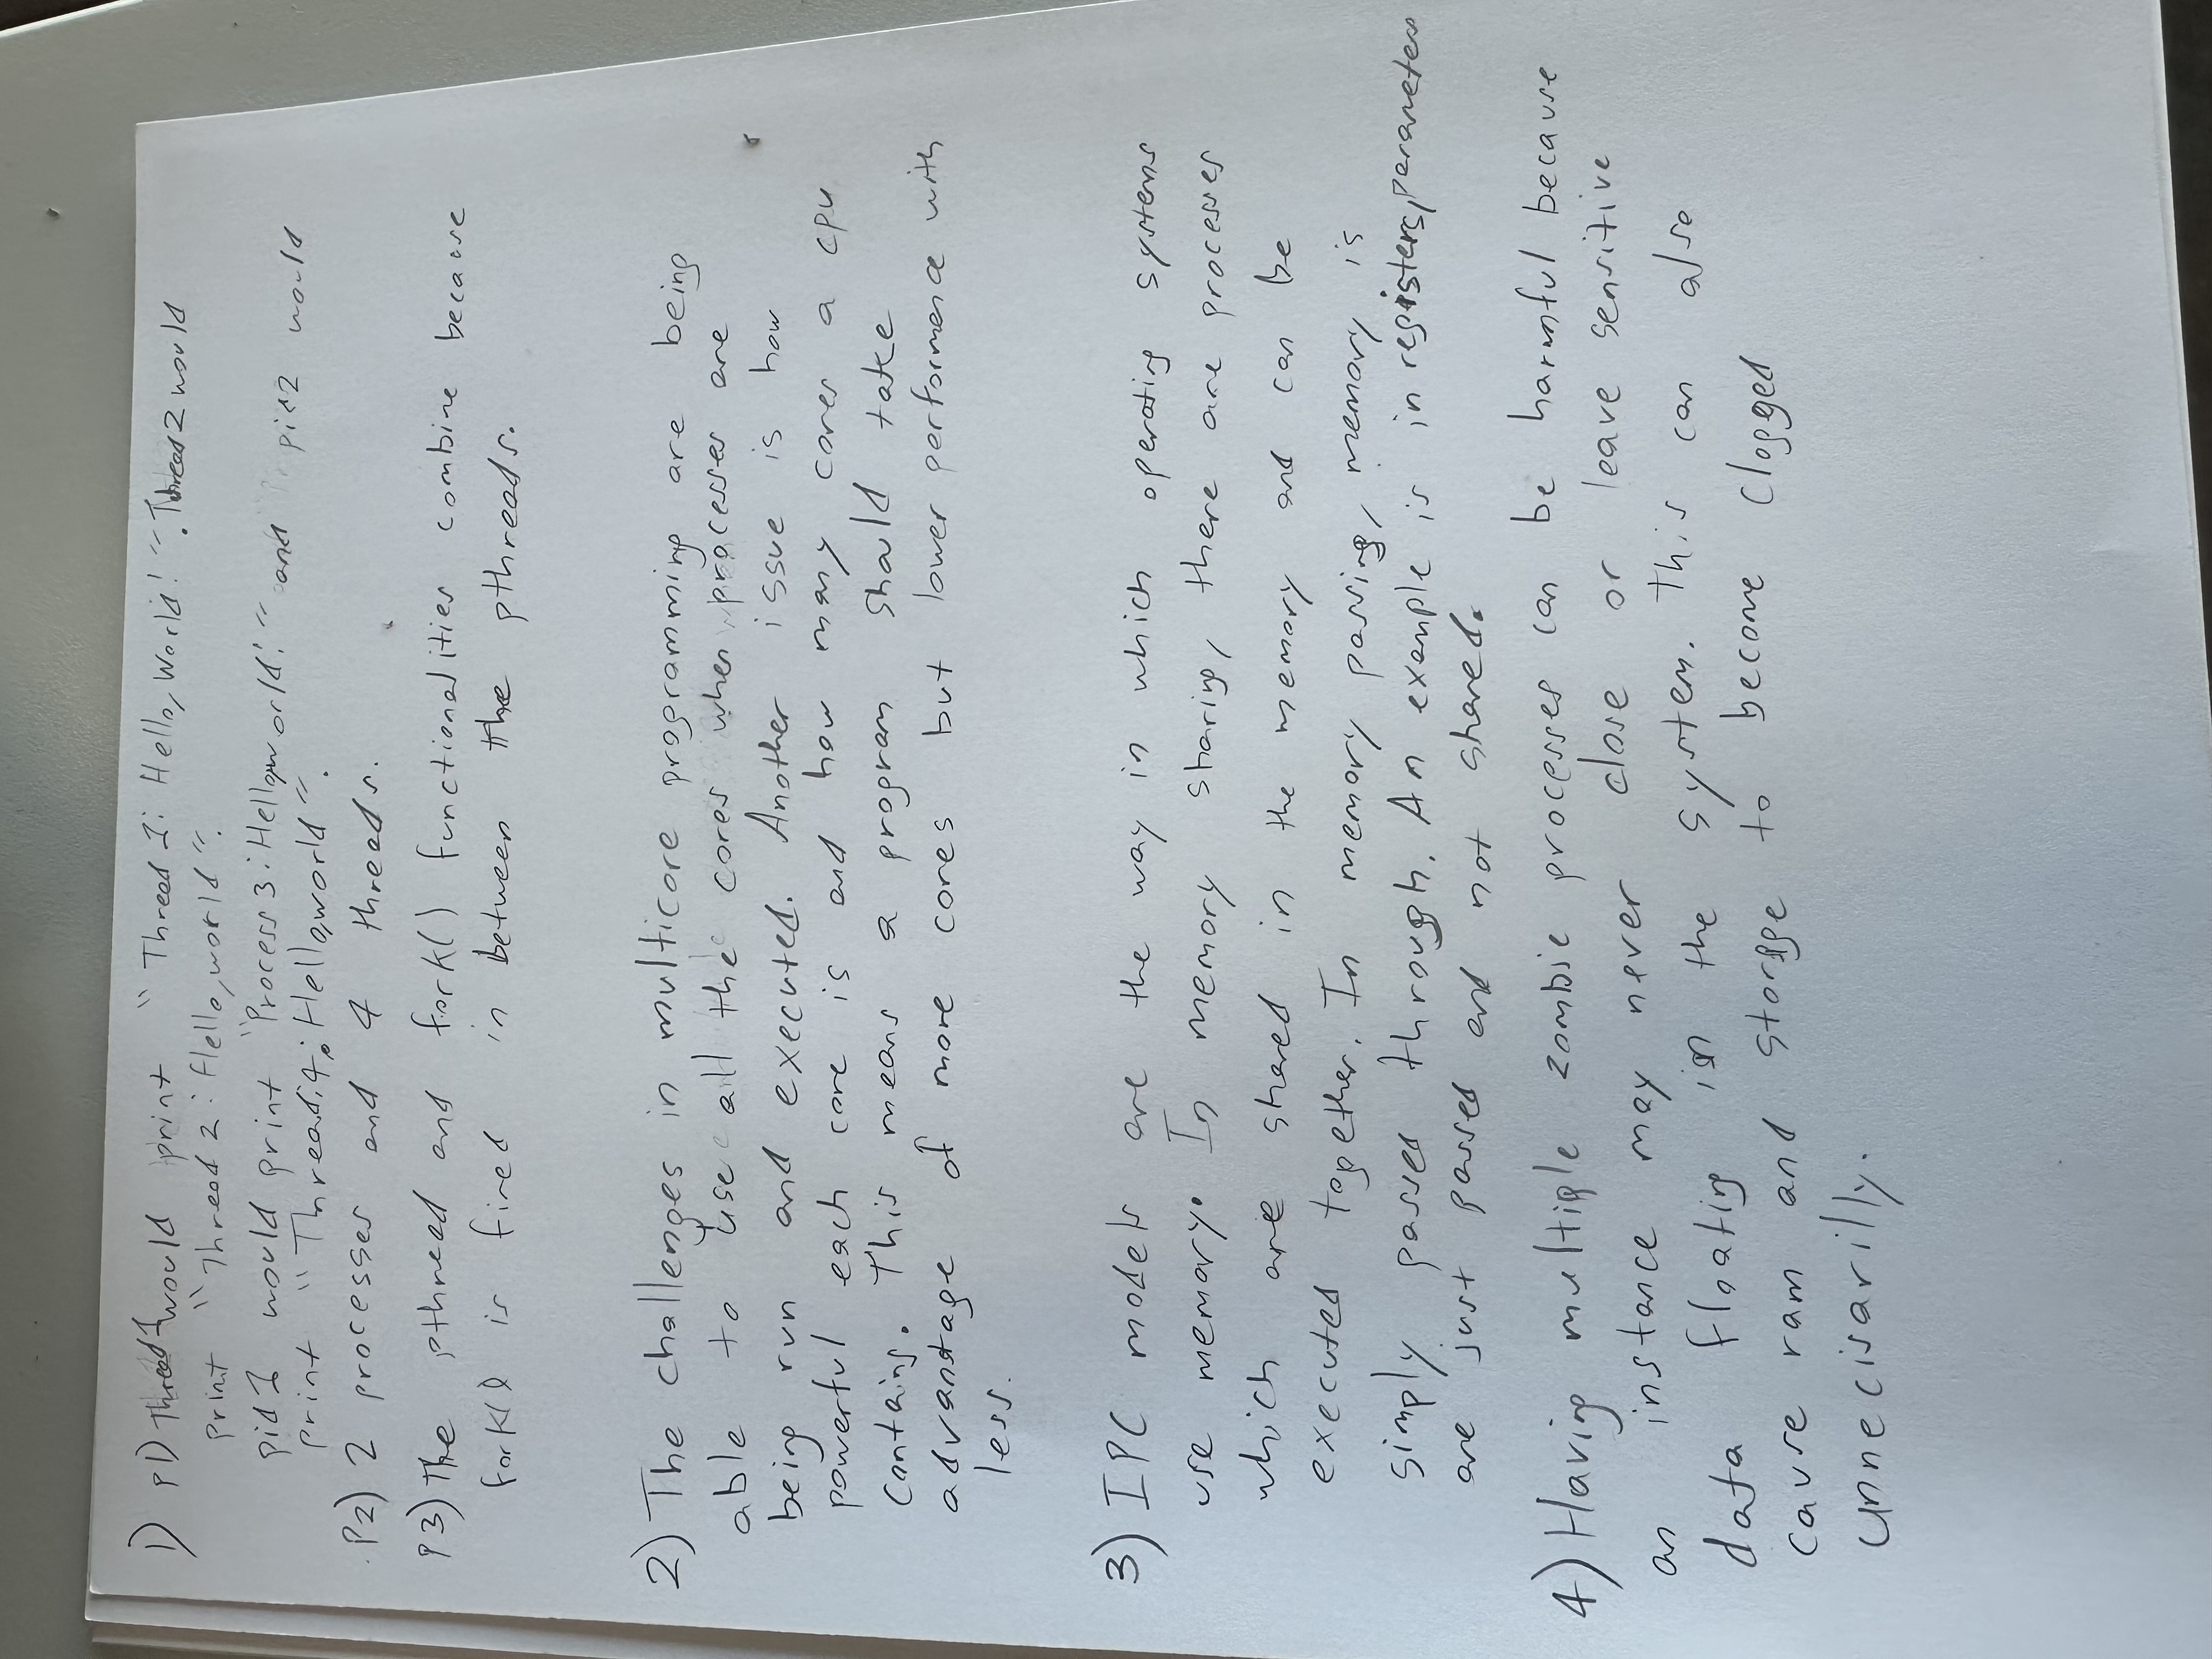 1) P1) Thread1 would print "Thread 1: Hello, World!". Thread 2 would
print "Thread 2: Hello, world".
pid1 would print "Process 3: Hello, world!" and pid2 would
print "Thread 4: Hello, world".
P2) 2 processes and 4 threads.
P3) The pthread and fork() functionalities combine because
fork() is fired in between the pthreads.
2) The challenges in multicore programming are being
able to use all the cores when processes are
being run and executed. Another issue is how
powerful each core is and how many cores a cpu
contains. This means a program should take
advantage of more cores but lower performance with
less.
3) IPC models are the way in which operating systems
use memory. In memory sharing, there are processes
which are shared in the memory and can be
executed together. In memory passing, memory is
simply passed through. An example is in registers, parameters
are just passed and not shared.
4) Having multiple zombie processes can be harmful because
an instance may never close or leave sensitive
data floating in the system. This can also
cause ram and storage to become clogged
unnecisarilly.